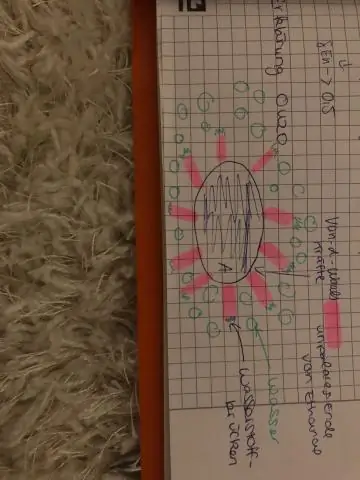 Erklärung Ouzo
Van-d-Waals
Kräfte
unpolares Ende
von Ethanol
A
Wasser
Wasserstoff-
brücken